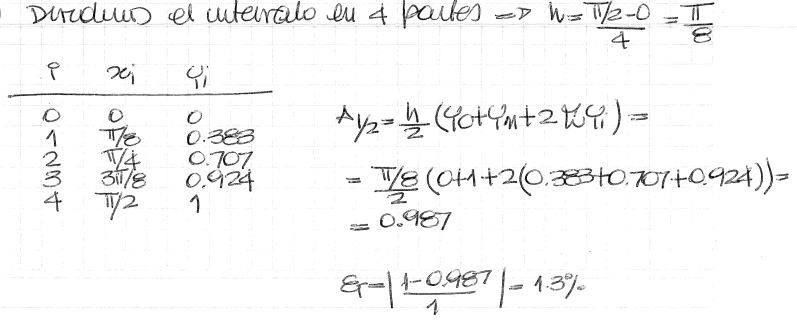 Dividimos el intervalo en 4 partes => h = (π/2-0)/4 = π/8
i xi yi
0 0 0
1 π/8 0.383
2 π/4 0.707
3 3π/8 0.924
4 π/2 1
A1/2 = h/2 (y0+yn+2Σyi) =
= (π/8)/2 (0+1+2(0.383+0.707+0.924)) =
= 0.987
εr = |(1-0.987)/1| = 1.3%